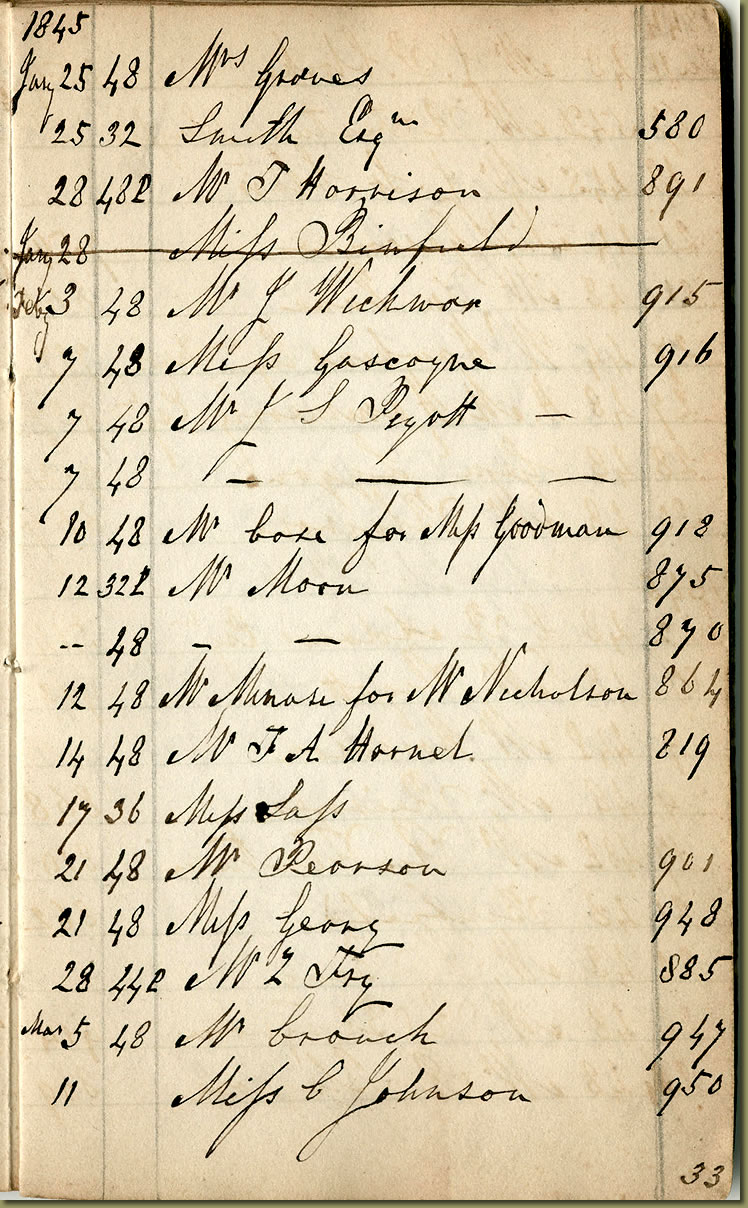 1845
Jany 25 48 Mrs Groves
25 32 Smith Esqr 580
28 48P Mr T Harrison 891
Jany 28 Miss Binfield
Feby 3 48 Mr J Wickwar 915
7 48 Miss Gascoyne 916
7 48 Mr J S Pegott —
7 48 — — —
10 48 Mr Case for Miss Goodman 918
12 32P Mr Moon 875
-- 48 — — 870
12 48 Mr for Mr Nicholson 864
14 48 Mr F A Hornel 819
17 36 Miss Lass
21 48 Mr Pearson 901
21 48 Miss Georg 948
28 44P Mr Z Fry 885
Mar 5 48 Mr Crouch 947
11 Miss C Johnson 950
33